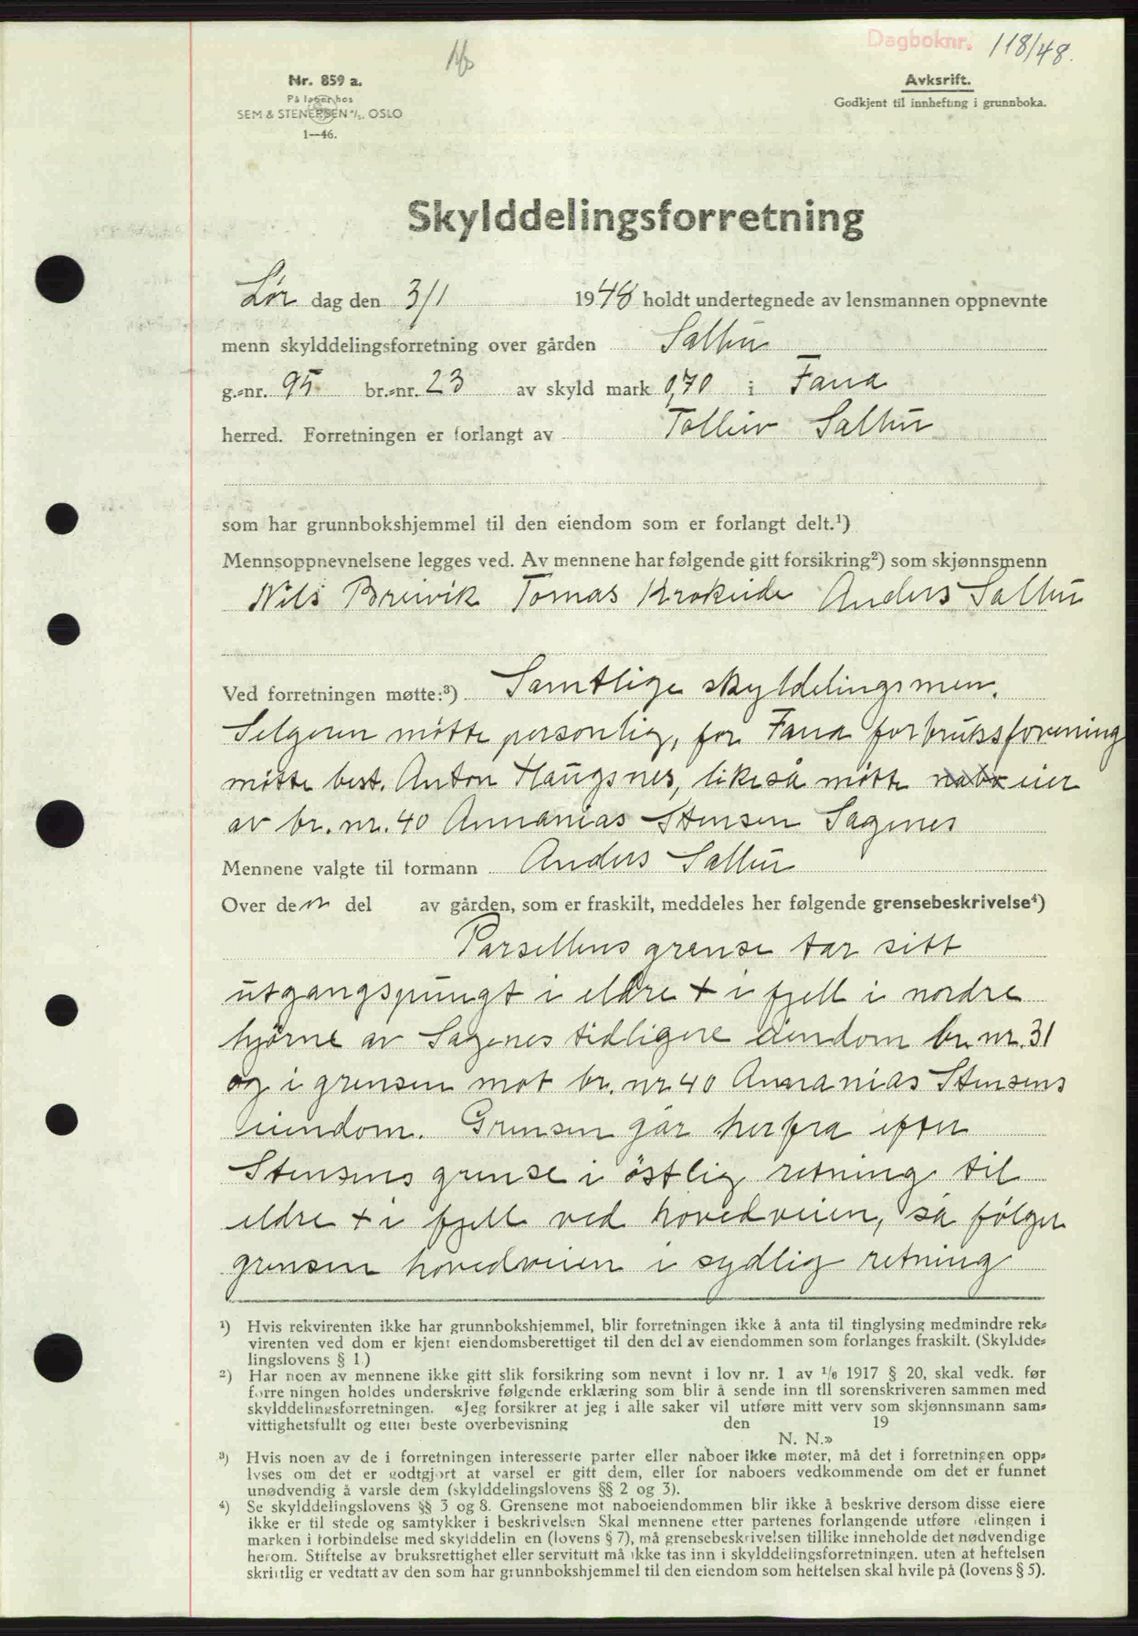 Dagboknr. 118/48.
Nr. 859 a.
På lager hos
SEM & STENERSEN A/S. OSLO
1—46.
Avksrift.
Godkjent til innhefting i grunnboka.
Skylddelingsforretning
Lør dag den 3/1 1948 holdt undertegnede av lensmannen oppnevnte
menn skylddelingsforretning over gården Salthu
g.-nr. 95 br.-nr. 23 av skyld mark 0,70 i Fana
herred. Forretningen er forlangt av Salthu
som har grunnbokshjemmel til den eiendom som er forlangt delt.¹)
Mennsoppnevnelsene legges ved. Av mennene har følgende gitt forsikring²) som skjønnsmenn
Nils Breivik Tomas Krokeide Anders Salthu
Ved forretningen møtte:³) Samtlige skyldelingsmen.
Selgeren møtte personlig, for Fana forbruksforening
møtte best. Anton Haugsnes, likeså møtte nabo eier
av br. nr. 40 Annanias Stensen Sagenes
Mennene valgte til formann Anders Salthu
Over den del av gården, som er fraskilt, meddeles her følgende grensebeskrivelse⁴)
Parsellens grense tar sitt
utgangspungt i eldre + i fjell i nordre
hjørne av Sagenes tidligere eiendom br. nr. 31
og i grensen mot br. nr 40 Annanias Stensens
eiendom. Grensen går herfra efter
Stensens grense i östlig retning til
eldre + i fjell ved hovedveien, så følger
grensen hovedveien i sydlig retning
¹) Hvis rekvirenten ikke har grunnbokshjemmel, blir forretningen ikke å anta til tinglysing medmindre rek-
virenten ved dom er kjent eiendomsberettiget til den del av eiendommen som forlanges fraskilt. (Skyldde-
lingslovens § 1)
²) Har noen av mennene ikke gitt slik forsikring som nevnt i lov nr. 1 av 1/6 1917 § 20, skal vedk. før
forretningen holdes underskrive følgende erklæring som blir å sende inn til sorenskriveren sammen med
skylddelingsforretningen. «Jeg forsikrer at jeg i alle saker vil utføre mitt verv som skjønnsmann sam-
vittighetsfullt og etter beste overbevisning den 19
N. N.»
³) Hvis noen av de i forretningen interesserte parter eller naboer ikke møter, må det i forretningen opp-
lyses om det er godtgjort at varsel er gitt dem, eller for naboers vedkommende om det er funnet
unødvendig å varsle dem (skylddelingslovens §§ 2 og 3).
⁴) Se skylddelingslovens §§ 3 og 8. Grensene mot naboeiendommen blir ikke å beskrive dersom disse eiere
ikke er til stede og samtykker i beskrivelsen Skal mennene etter partenes forlangende utføre delingen i
marken i forbindelse med skylddelingen (lovens § 7), må grensebeskrivelsen tillike inneholde det nødvendige
herom. Stiftelse av bruksrettighet eller servitutt må ikke tas inn i skylddelingsforretningen. uten at heftelsen
skriftlig er vedtatt av den som har grunnbokshjemmel til den eiendom som heftelsen skal hvile på (lovens § 5).